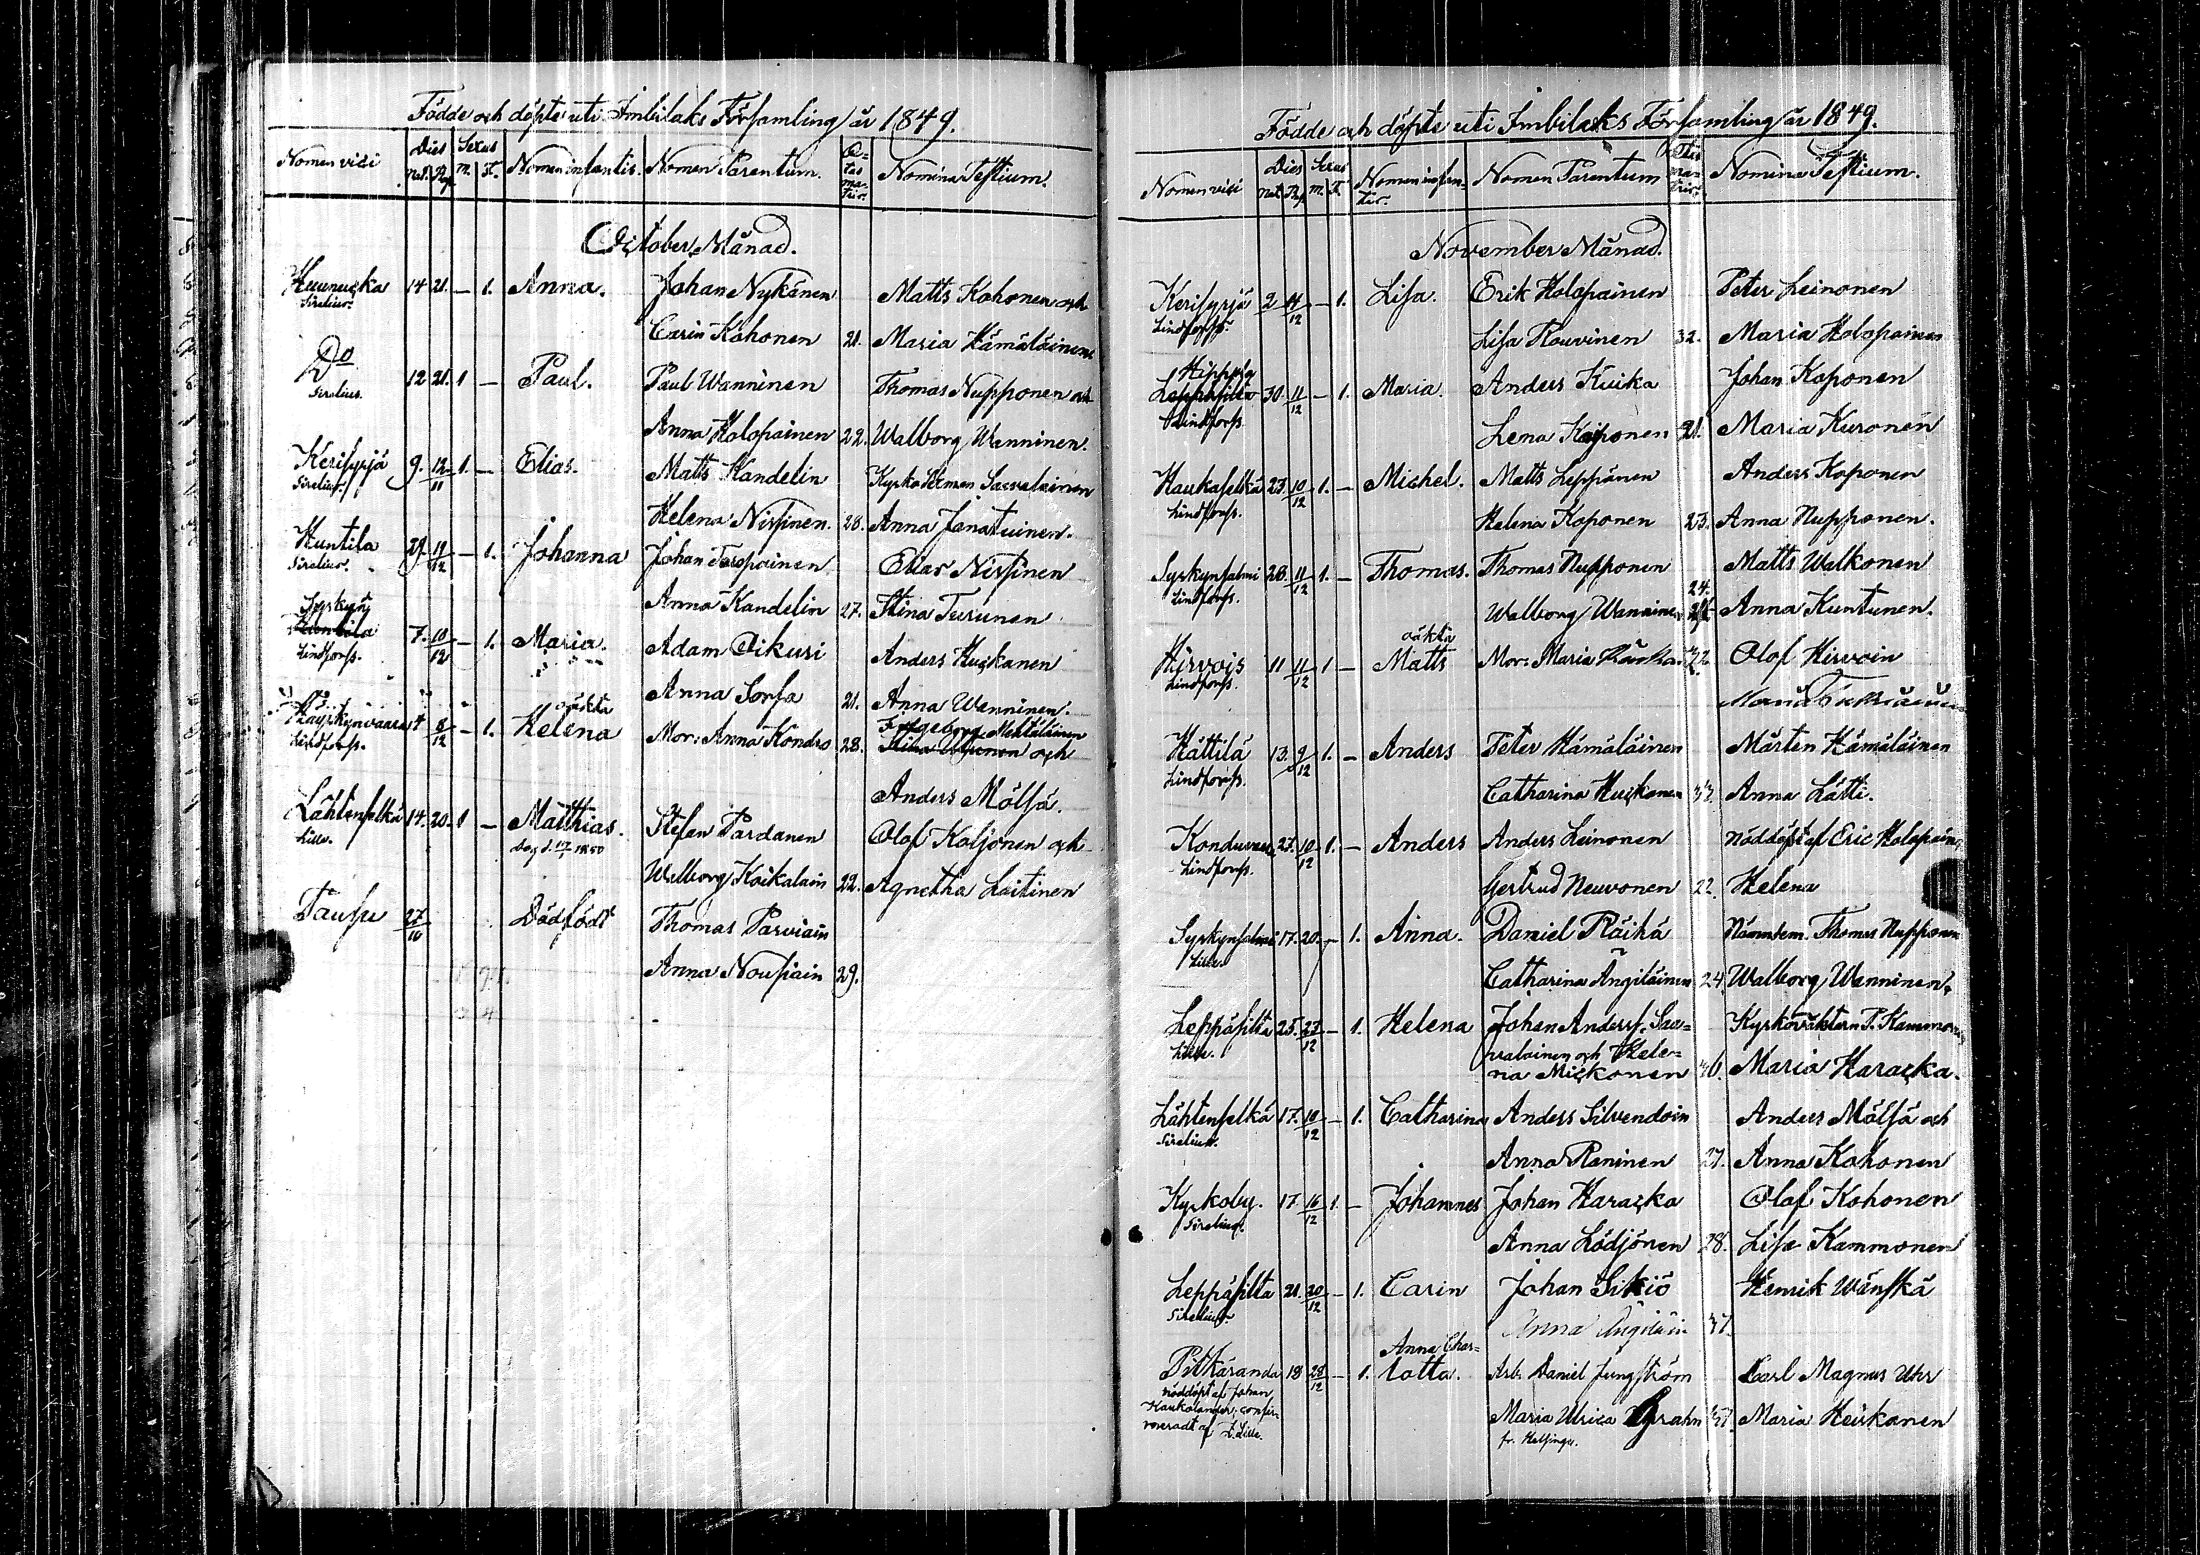 Födde och döpte uti Imbilaks Församling år 1849.
Nomen vici Dies Nat. Bap. Sexus M. F. Nomen infantis. Nomen Parentum. Ætas matris. Nomina Testium.
October Månad.
Huunucka 14 21. — 1. Anna. Johan Nykänen Matts Kohonen och
Sirelius.
Carin Kohonen 21. Maria Hämäläinen
Do 12 21. 1 — Paul. Paul Wanninen Thomas Nupponen och
Sirelius.
Anna Holopainen 22. Walborg Wanninen.
Kerisyrjä 9. 12/11 1. — Elias. Matts Kandelin Kyrko Sacvalainen
Sirelius.
Helena Nissinen. 28. Anna Janatuinen.
Huntila 29. 19/12 — 1. Johanna Johan Taropainen Elias Nissinen
Sirelius.
Anna Kandelin 27. Stina Turunen
Syskyä
Huntila 7. 10/12 — 1. Maria. Adam Oikuri Anders Huckanen
Lindforss.
Anna Sorsa 21. Anna Wanninen.
oäkta Ingeborg
Räyskynvaara 4 8/12 — 1. Helena Mor: Anna Kondro 28. Stina och
Lindforss.
Anders Mölsä.
Lähtenselkä 14. 20. 1 — Matthias. Stefan Pardanen Olof Koljonen och
Lille. 1850
Walborg Koikalain 22. Agnetha Laitinen
Pausu 27/10 Dödfödt Thomas Parviain
Anna Nousiain 29.
Födde och döpte uti Imbilaks Församling år 1849.
Nomen vici Dies Nat. Bap. Sexus M. F. Nomen infantis. Nomen Parentum Ætas matris. Nomina Testium.
November Månad.
Kerisyrjä 2 11/12 — 1. Lisa. Erik Holopainen Peter Leinonen
Lindforss.
Lisa Rouvinen 32. Maria Holopainen
Hippola
Leppäsilta 30 11/12 — 1. Maria. Anders Kuika Johan Koponen
Lindforss.
Lena Koponen 21. Maria Kuronen
Haukaselkä 23. 10/12 1. — Michel. Matts Leppänen Anders Koponen
Lindforss.
Helena Koponen 23. Anna Nupponen.
Syskynsalmi 28. 11/12 1. — Thomas. Thomas Nupponen Matts Walkonen
Lindforss. 24.
Walborg Wanninen Anna Kuntunen.
oäkta
Hirvois 11 11/12 1 — Matts Mor: Maria Olof Hirvoin
Lindforss.
Hättilä 13. 9/12 1. — Anders Peter Hämäläinen Mårten Hämäläinen
Lindforss.
Catharina Huckanen 33. Anna Lätti.
Konduvaara 27. 10/12 1. — Anders Anders Leinonen Nöddöpt af Eric Holopain
Lindforss.
Gertrud Neuvonen 22. Helena
Syskynsalmi 17. 20. — 1. Anna. Daniel Räihä Nämndem. Thomas Nupponen
Lille.
Catharina Ängiläinen 24. Walborg Wanninen.
Leppäsilta 25. 27/12 — 1. Helena Johan Anderss. Sac= Kyrkoväktern P. Kammonen
Lille. valainen och Hele=
na Mickonen 36. Maria Haracka.
Lähtenselkä 17. 10/12 — 1. Catharina Anders Silvendoin Anders Mölsä och
Sirelius.
Anna Raninen 27. Anna Kohonen
Kyrkoby. 17. 16/12 1. — Johannes Johan Haracka Olof Kohonen
Sirelius.
Anna Lödjönen 28. Lisa Kammonen
Leppäsilta 21. 20/12 — 1. Carin Johan Sikiö Henrik Wänskä
Sirelius.
Anna Ängiläin 37.
Anna Char=
Pitkäranda 18 28/12 — 1. lotta. Arb. Daniel Ljungström Carl Magnus Uhr
nöddöpt af Johan
Haukolander, confir-
meradt af J. Lille.
Maria Ulrica Grahn 37. Maria Heiskanen
fr. Helsinge.